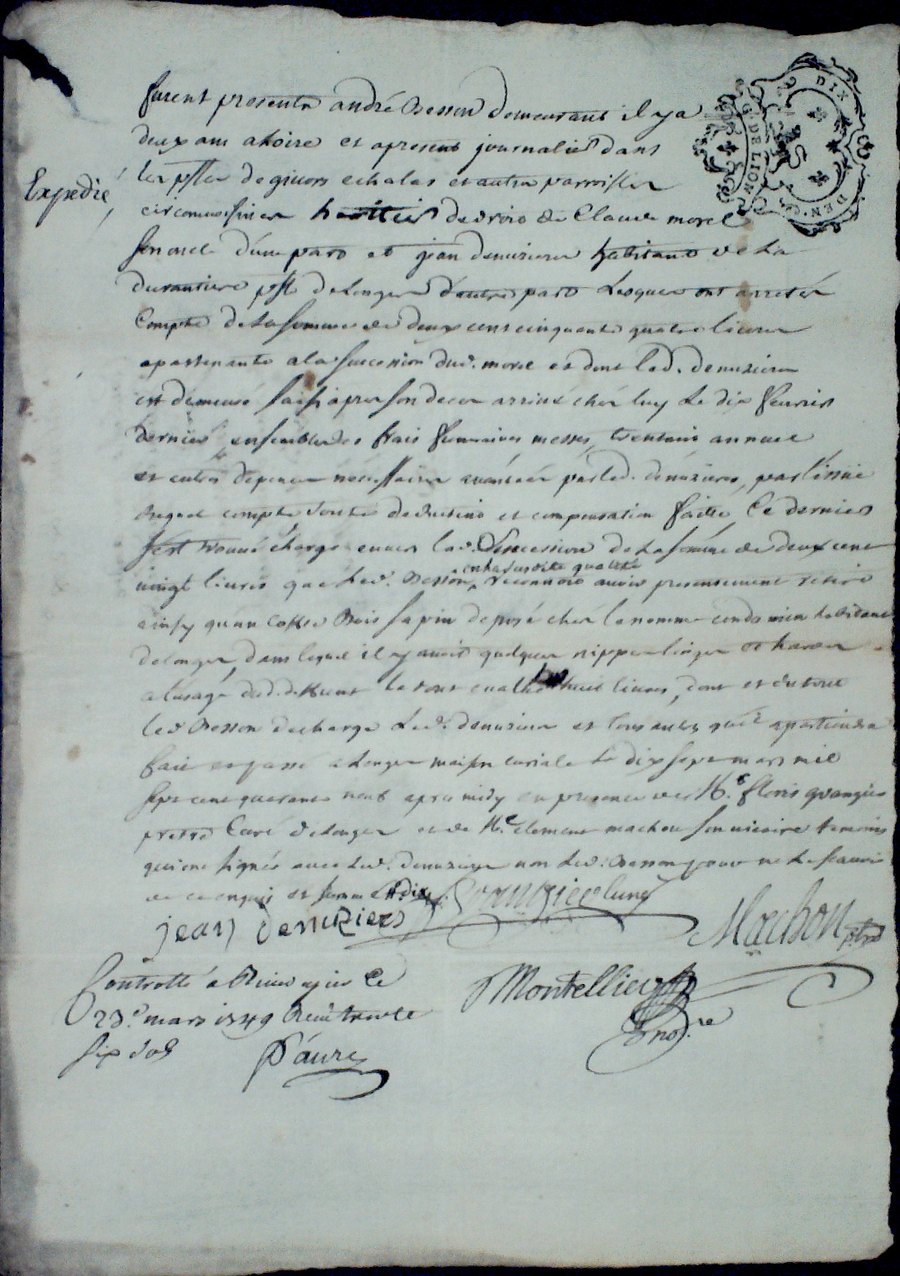 furent presents andré Besson demeurant il y a
deux ans a Loire et apresent journalier dans
les psses de givors echalas et autres parroisses
circonvoisines heritier de droio de Claude morel
son oncle d'une part et jean denuziere habitant de la
durantiere psse de Longes d'autre part Lesques ont arretés
Compte de la somme de deux cent cinquante quatre livres
apartenante a la succession dud. morel et dont led. denuziere
est demeuré saisi apres son deces arrivé chés luy Le dix fevrier
dernier ensemble des frais funeraires messes, trentain annuel
et autres depences necessaires avancées par led. denuziere, par l'issue
duquel compte toutes deduction et compensation faitte Ce dernier
s'est trouvé chargé envers lad. succession de la somme de deux cent
vingt livres que led. Besson en la susditte qualité reconnoio avoir presentement retiré
ainsy qu'un coffre Bois sapin deposé ches le nommé habitant
de longes, dans lequel il y avoit quelques nippes linges et hardes
a l'usage dud. deffunt le tout huit livres, dont et du tout
led. Besson decharge led. denuziere et tous autres qu'il apartiendra
fait et passé a Longes maison curiale Le dix sept mars mil
sept cent quarante neuf apres midy en presence de Mre floris grangier
pretre Curé de Longes et de Mre Clement machou son vicaire temoins
qui ont signés avec led. denuziere non led. Besson pour ne le scavoir
de ce enquis et sommé
jean denuziers
Machon ptre
Montellier
nore
Expedié
Controllé a Rive ce
23e mars 1749 Reçu trente
six sols
Daure
G. DE LION
DIX DEN.